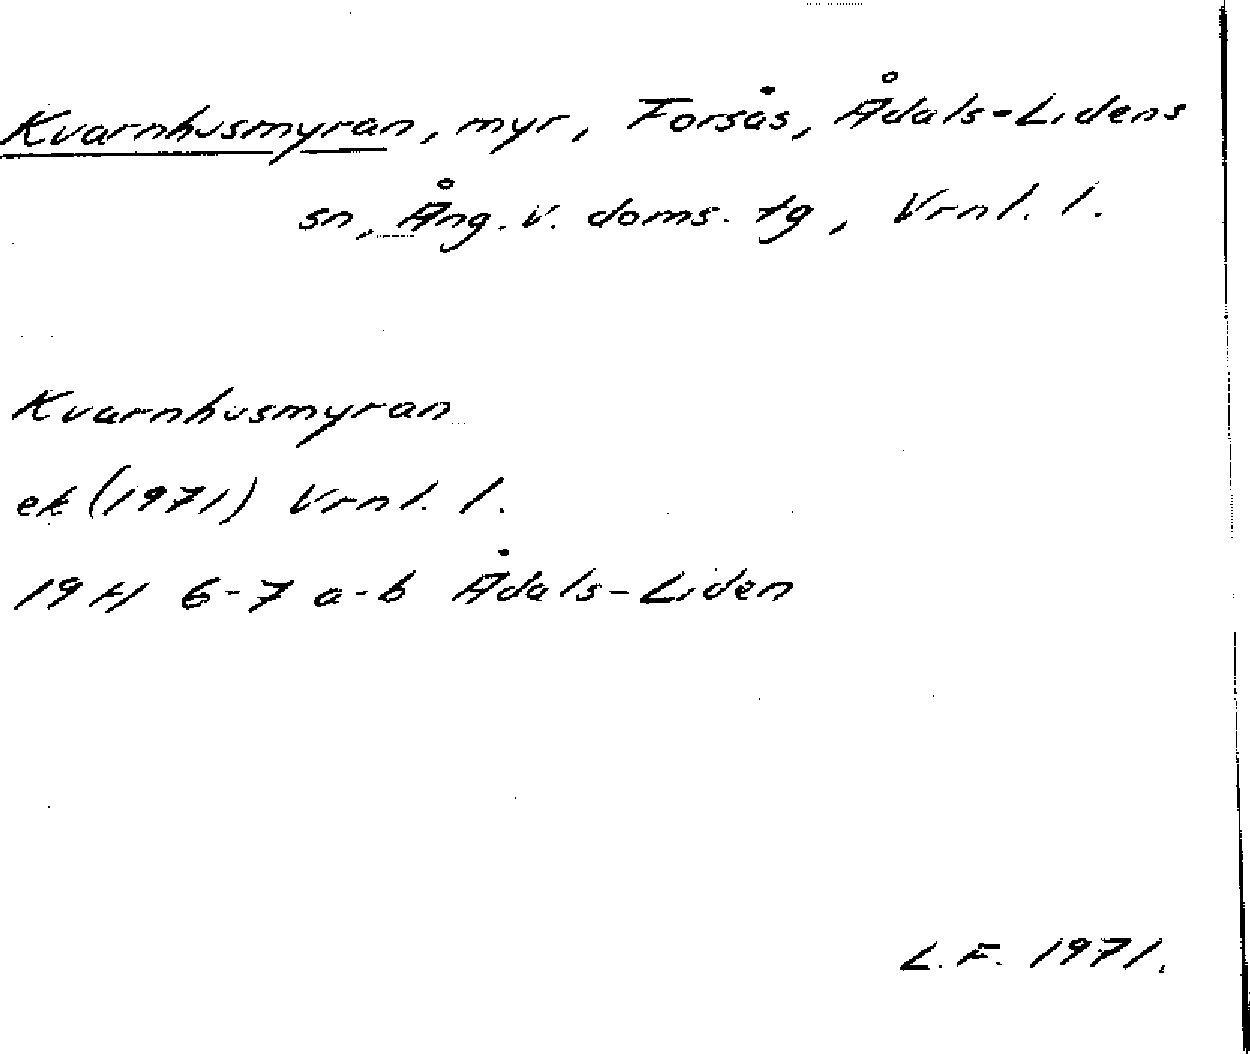 Kvarnhusmyran, myr, Forsås, Ådals-Lidens
sn, Ång. v. doms. tg, Vrnl. l.
Kvarnhusmyran
ek (1971) Vrnl. l.
19 H 6-7 a-b Ådals-Liden
L.F. 1971.